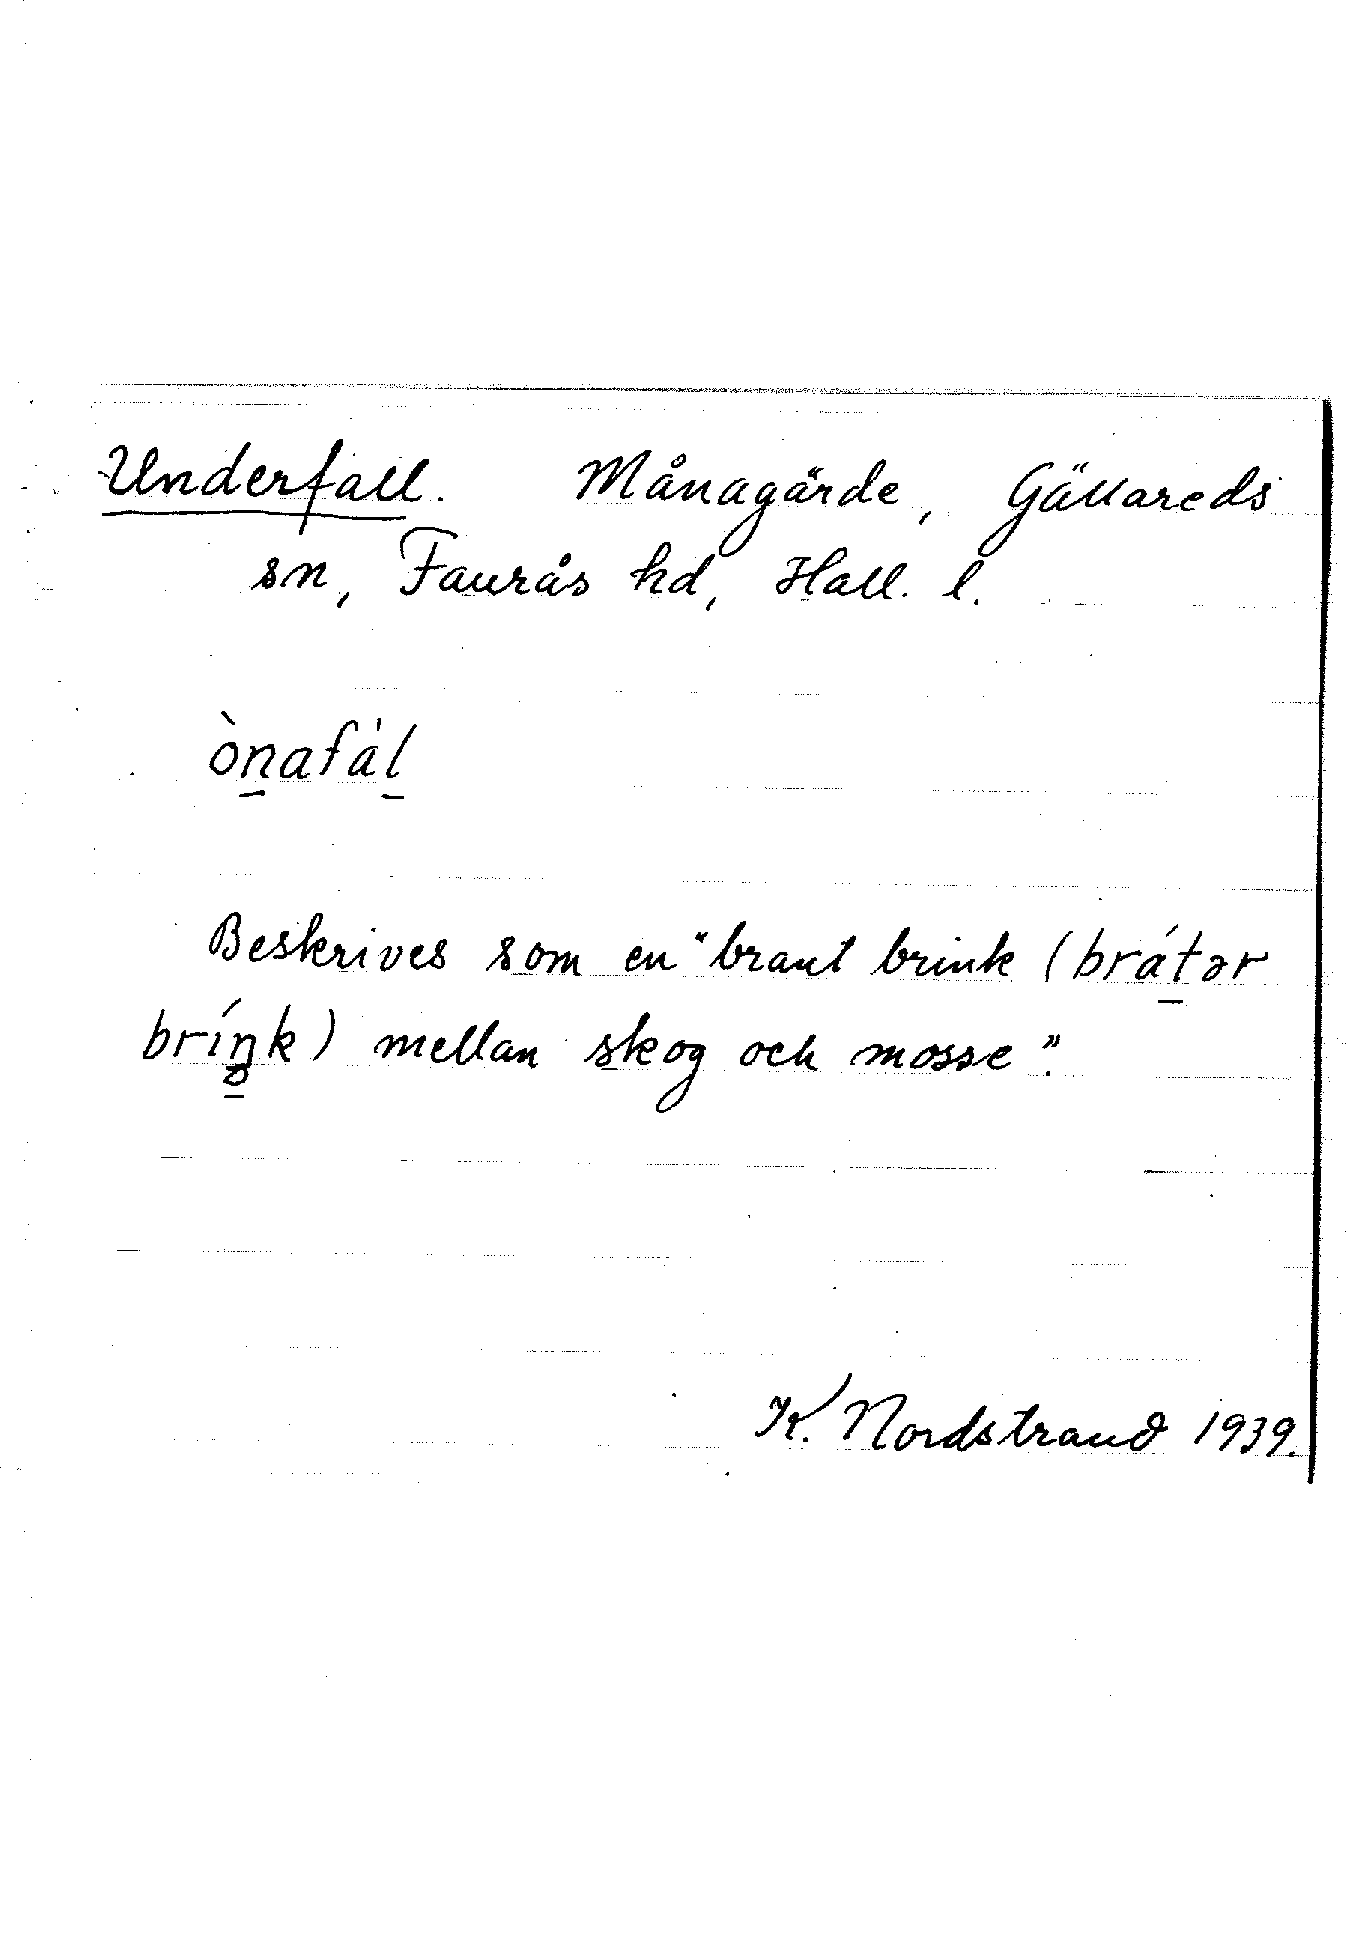 Underfall. Månagärde, Gällareds
sn, Faurås hd, Hall. l.
òn̲afál̲
Beskrives som en "brant brink (brát̲ər
bríŋ̲k) mellan skog och mosse".
K. Nordstrand 1939.